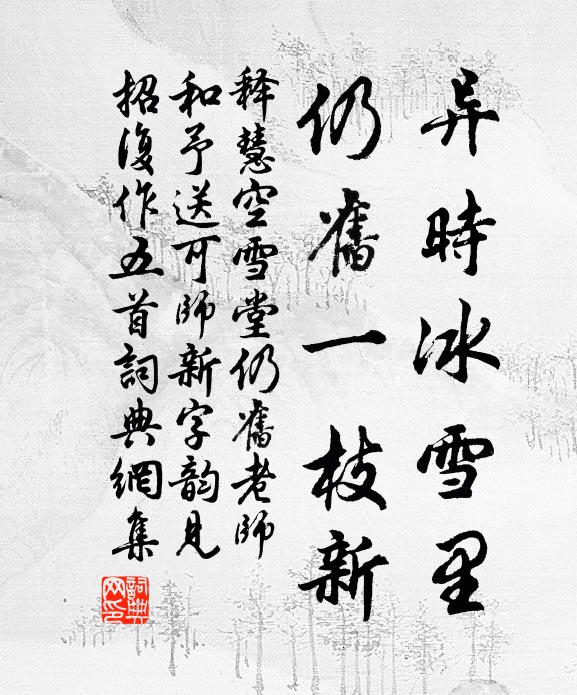 异時冰雪里
仍舊一枝新
释慧空雪堂仍舊老師
和予送可師新字韵見
招復作五首詞典網集
詞典网印